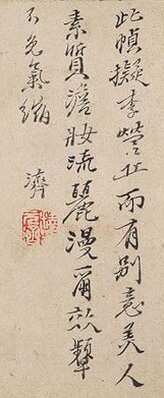 此幀擬李營丘而有別意美人
素質澹妝流麗漫爾效顰
不免氣縮 濟